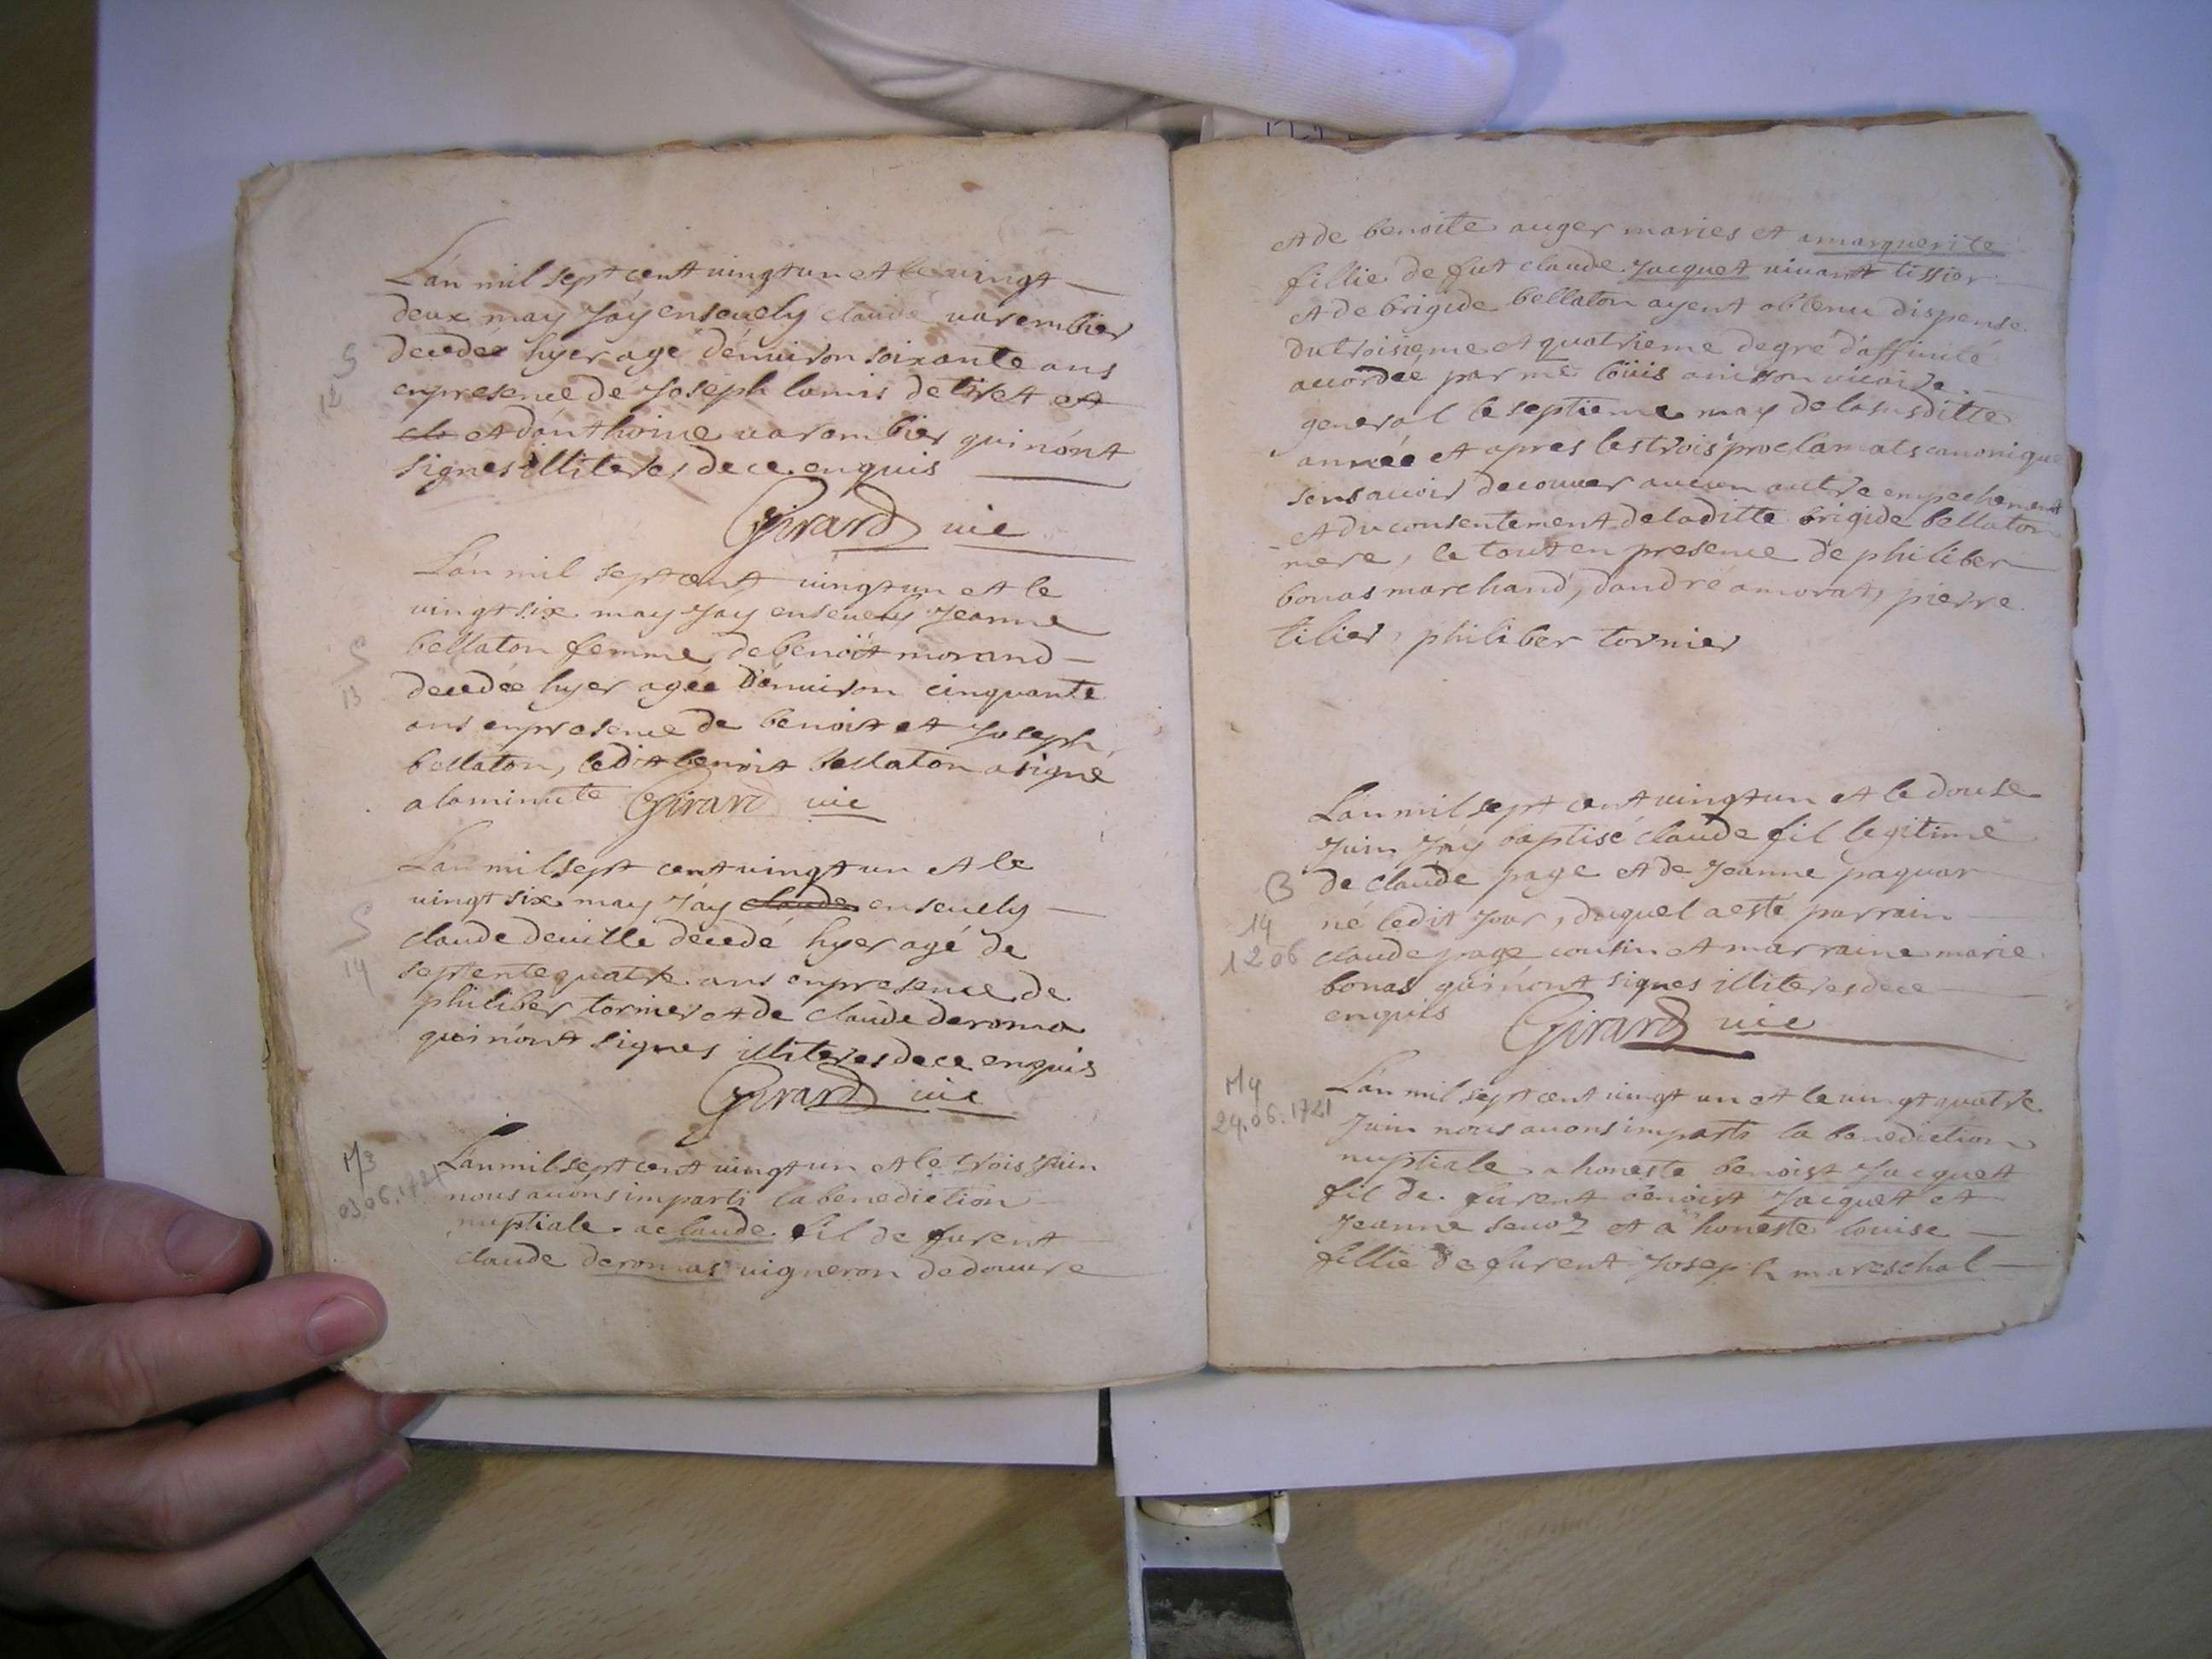 L'an mil sept cent vingt un et le vingt
deux may J'ay ensevely claude varembier
decedé hyer agé d'environ soixante ans
S
12
enpresence de Joseph lamis de tiret et
cla et d'anthoine varambier qui n'ont
signes illiteres de ce enquis
Girard vic
L'an mil sept cent vingt un et le
vingt six may J'ay ensevely Jeanne
bellaton femme de benoit morand
S
13
decedée hyer agée d'environ cinquante
ans enpresence de benoist et Joseph
bellaton, ledit benoist bellaton a signé
a la minute Girard vic
L'an mil sept cent vingt un et le
vingt six may J'ay claude ensevely
S
14
claude deville decedé hyer agé de
septente quatre ans enpresence de
philiber tornier et de claude deroma
qui n'ont signes illiteres de ce enquis
Girard vic
M3
03.06.1721
L'an mil sept cent vingt un et le trois Juin
nous avons imparti la benediction
nuptiale a claude fil de furent
claude deromas vigneron de douvre
122
et de benoite auger maries et a marguerite
fillie de fut claude Jacquet vivant tissier
et de brigide bellaton ayent obtenu dispense
du troisieme et quatrieme degré d'affinité
accordée par me loüis anisson vicaire
general le septieme may de la susditte
année et apres les trois proclamats canonique
sens avoir decouver aucun autre empechement
et du consentement de la ditte brigide bellaton
mere, le tout en presence de philiber
bonas marchand, d'andré amorat, pierre
tilier, philiber tornier
L'an mil sept cent vingt un et le douse
Juin J'ay baptisé claude fil legitime
B
14
1206
de claude page et de Jeanne paquar
né ledit Jour, duquel a esté parrain
claude page cousin et marraine marie
bonas qui n'ont signes illiteres de ce
enquis Girard vic
M4
24.06.1721
L'an mil sept cent vingt un et le vingt quatre
Juin nous avons imparti la benediction
nuptiale a honeste benoist Jacquet
fil de furent benoist Jacquet et
Jeanne sevoz et a honeste louise
fillie de furent Joseph mareschal